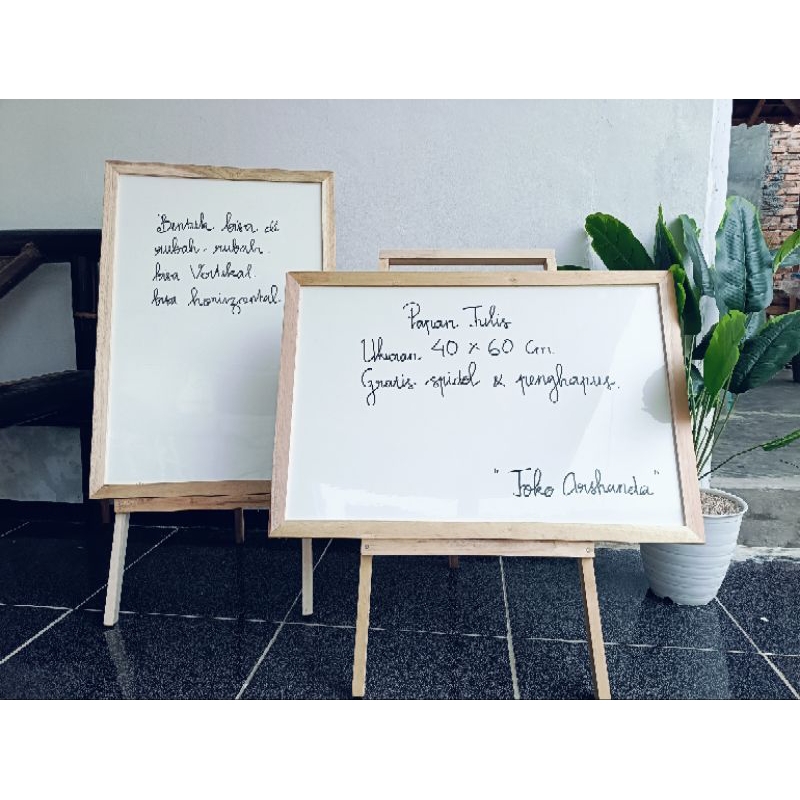 Bentuk bisa di
rubah-rubah.
bisa Vertikal.
bisa horinzontal.
Papan Tulis
Ukuran 40 x 60 Cm.
Gratis spidol & penghapus.
"Toko Arshanda"